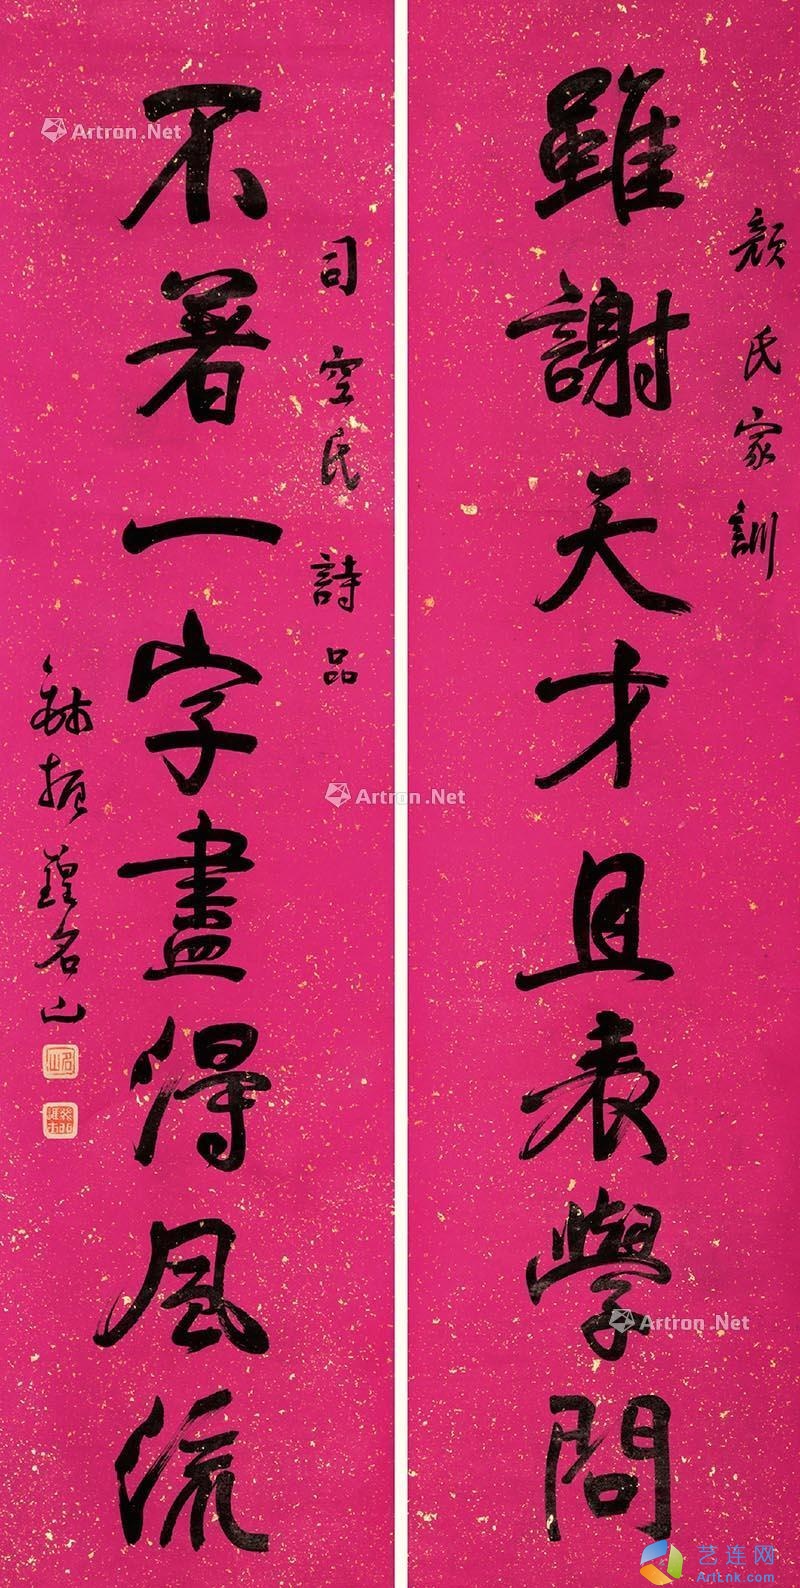 顏氏家訓
雖謝天才且表學問
司空氏詩品
不著一字盡得風流
錢振鍠名山
名山
Artron.Net
Artron.Net
Artron.Net
艺连网
ArtLnk.com